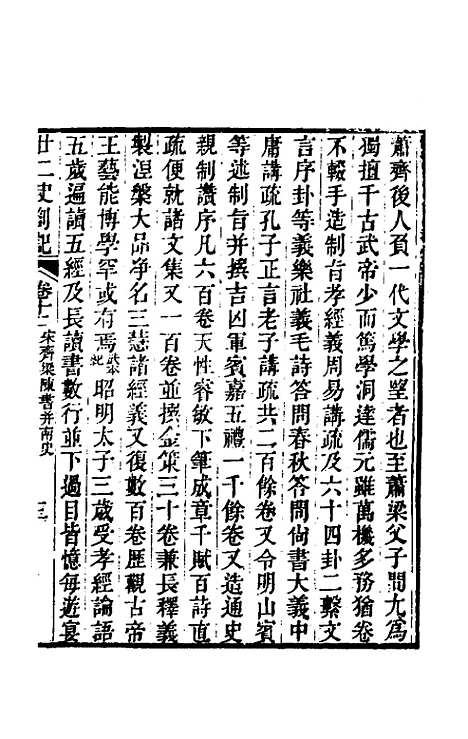 蕭齊後人負一代文學之望者也至蕭梁父子間尤爲
獨擅千古武帝少而篤學洞達儒元雖萬機多務猶卷
不輟手造制旨孝經義周易講疏及六十四卦二繫文
言序卦等義樂社義毛詩答問春秋答問尙書大義中
庸講疏孔子正言老子講疏共二百餘卷又令明山賓
等述制旨并撰吉凶軍賓嘉五禮一千餘卷又造通史
親制讚序凡六百卷天性睿敏下筆成章千賦百詩直
疏便就諸文集又一百卷並撰金策三十卷兼長釋義
製涅槃大品净名三慧諸經義又復數百卷歷觀古帝
王藝能博學罕或有焉武本紀昭明太子三歲受孝經論語
五歲遍讀五經及長讀書數行並下過目皆憶每遊宴
廿二史劄記 卷十二宋齊梁陳書并南史 三